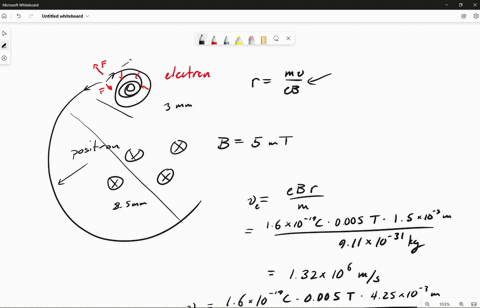 Microsoft Whiteboard
Untitled whiteboard
F
F
electron
3 mm
r = mv / eB
positron
B = 5 mT
8.5mm
v_e = eBr / m
= 1.6 x 10^-19 C · 0.005 T · 1.5 x 10^-3 m / 9.11 x 10^-31 kg
= 1.32 x 10^6 m/s
1.6 x 10^-19 C · 0.005 T · 4.25 x 10^-3 m
103%